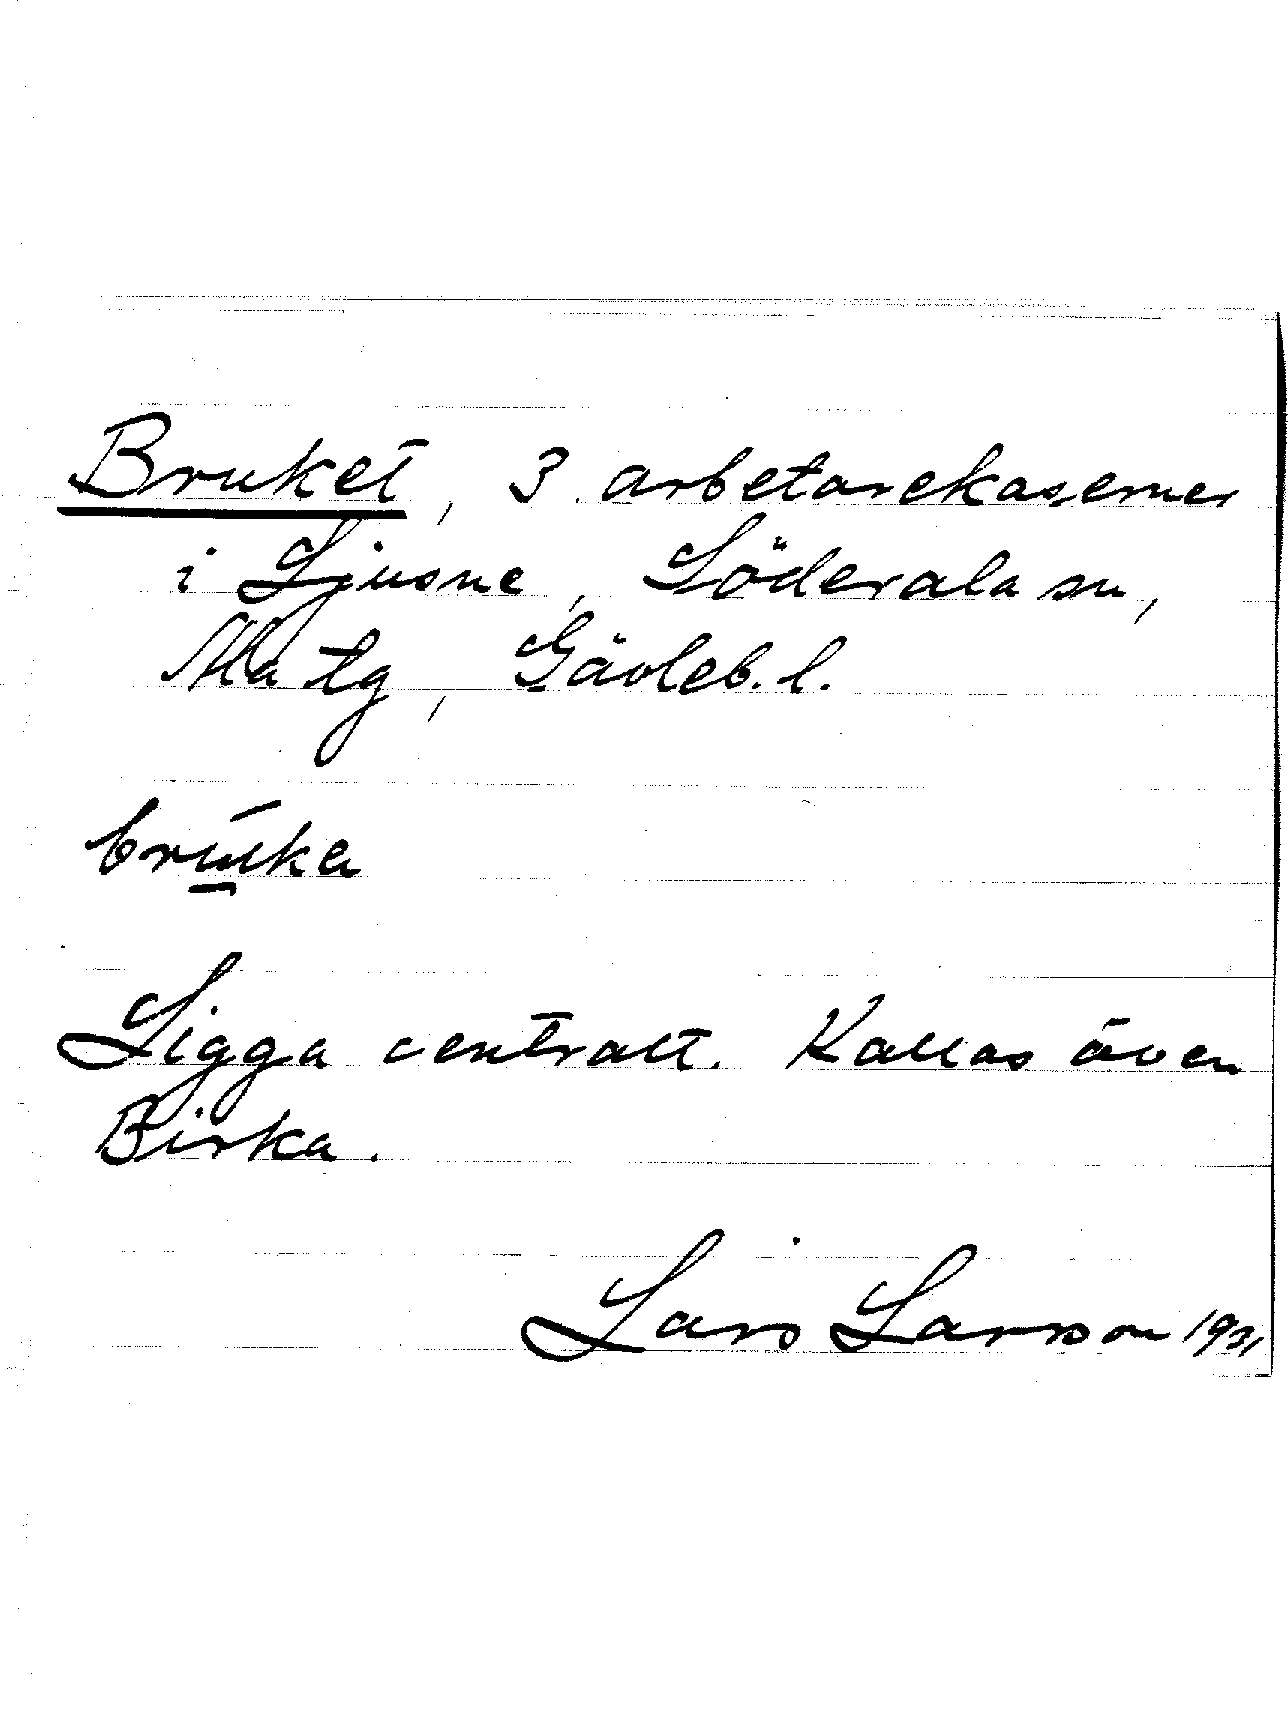 Bruket, 3 arbetarekaserner
i Ljusne, Söderala sn,
Ala tg, Gävleb. l.
brúka
Ligga centralt. Kallas även
Birka.
Lars Larsson 1931